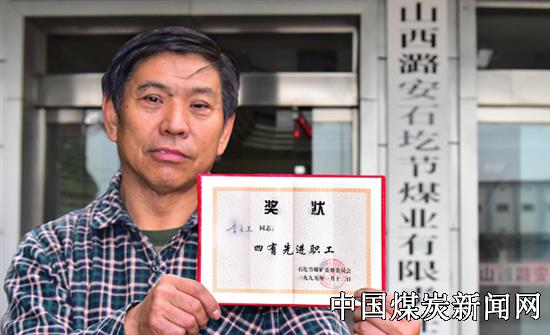 山西潞安石圪节煤业有限
奖状
同志:
四有先进职工
石圪节煤矿竞赛委员会
一九九九年一月十二日
山西潞安
中国煤炭新闻网